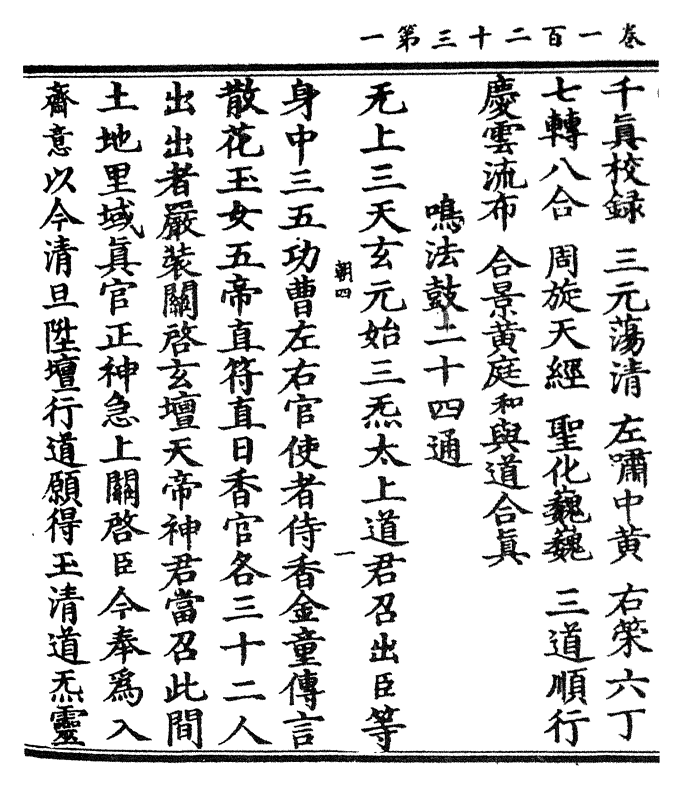 卷一百二十三第一
千眞校録　三元蕩清　左嘯中黃　右榮六丁
七轉八合　周旋天經　聖化巍巍　三道順行
慶雲流布　合景黃庭　和與道合眞
鳴法鼓二十四通
朝四
一
无上三天玄元始三炁太上道君召出臣等
身中三五功曹左右官使者侍香金童傳言
散花玉女五帝直符直日香官各三十二人
出出者嚴裝關啓玄壇天帝神君當召此間
土地里域眞官正神急上關啓臣今奉爲入
齋意以今清旦陞壇行道願得玉清道炁靈